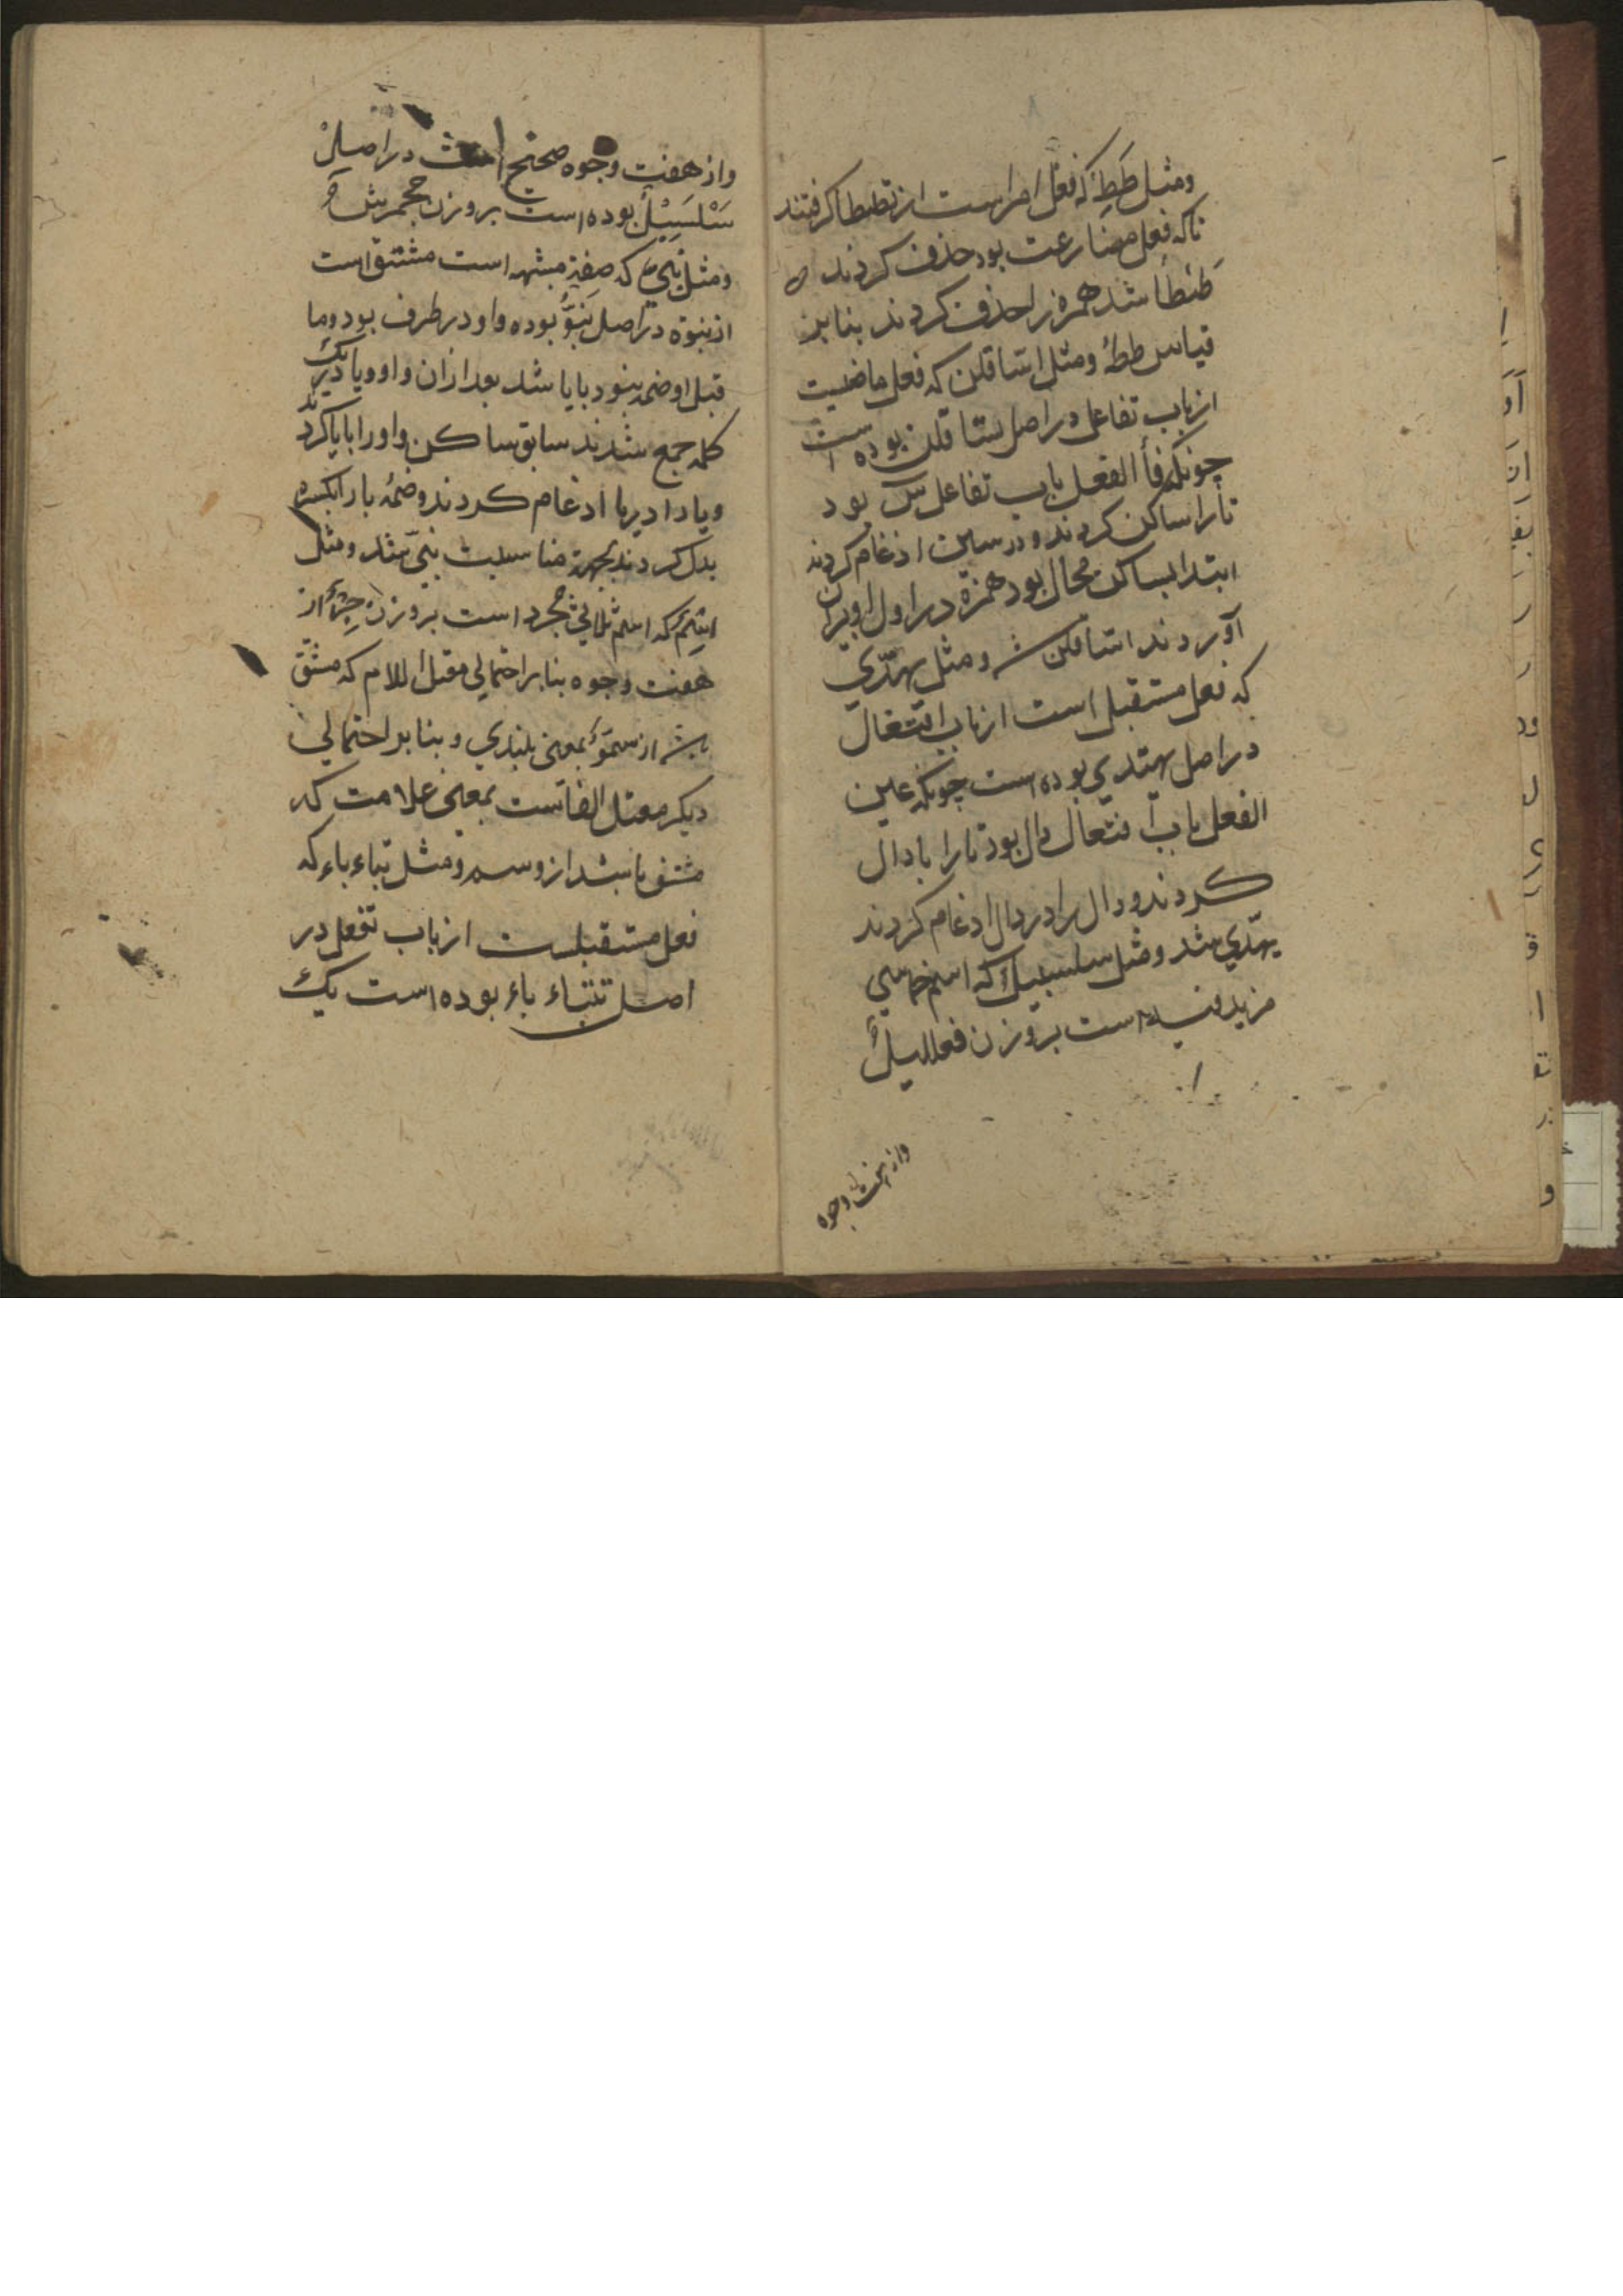 ومثل طَطِ که فعل امراست از تطبطا کرفتند
تا که فعل مضارعت بود حذف کردند
طَنطأ شد همزه را حذف کردند بنابر
قیاس طط ومثل اسّاقلن که فعل ماضیست
از باب تفاعل در اصل تساقلن بوده است
چونکه فأ الفعل باب تفاعل س بود
تا را ساکن کردند و در سین ادغام کردند
ابتدا بساکن محال بود همزة در اول او در
آوردند اساقلن شد و مثل یهدّي
که فعل مستقبل است از باب افتعال
در اصل یهتدي بوده است چونکه عین
الفعل باب افتعال دال بود تا را با دال
کردند و دال را در دال ادغام کردند
یهدّي شد ومثل سلسبیل که اسم خماسي
مزید فیه است بروزن فعللیلٌ
واز هفت وجوه
واز هفت وجوه صحیح است در اصل
سَلْسَبِیْلٌ بوده است بروزن جحمرش
ومثل نبیّ که صفة مشبهه است مشتق است
از نبوة در اصل نَبِوٌ بوده واو در طرف بود وما
قبل او ضمه بنود بایا شد بعد از آن واو ویا در یک
کلمه جمع شدند سابق ساکن واو را بایا کردند
ویا را در یا ادغام کردند وضمهٔ با را بکسره
بدل کردند بجهة مناسبت نبیّ شد ومثل
اسم که اسم ثلاثي مجرد است بروزن از
هفت وجوه بنابر احتمالي معتل اللام که مشتق
باشد از سموّ بمعنی بلندي و بنابر احتمالي
دیکر معتل الفاست بمعنی علامت که
مشتق باشد از وسم ومثل تباء باء که
فعل مستقبلست از باب تفعل در
اصل تتباء باء بوده است یک